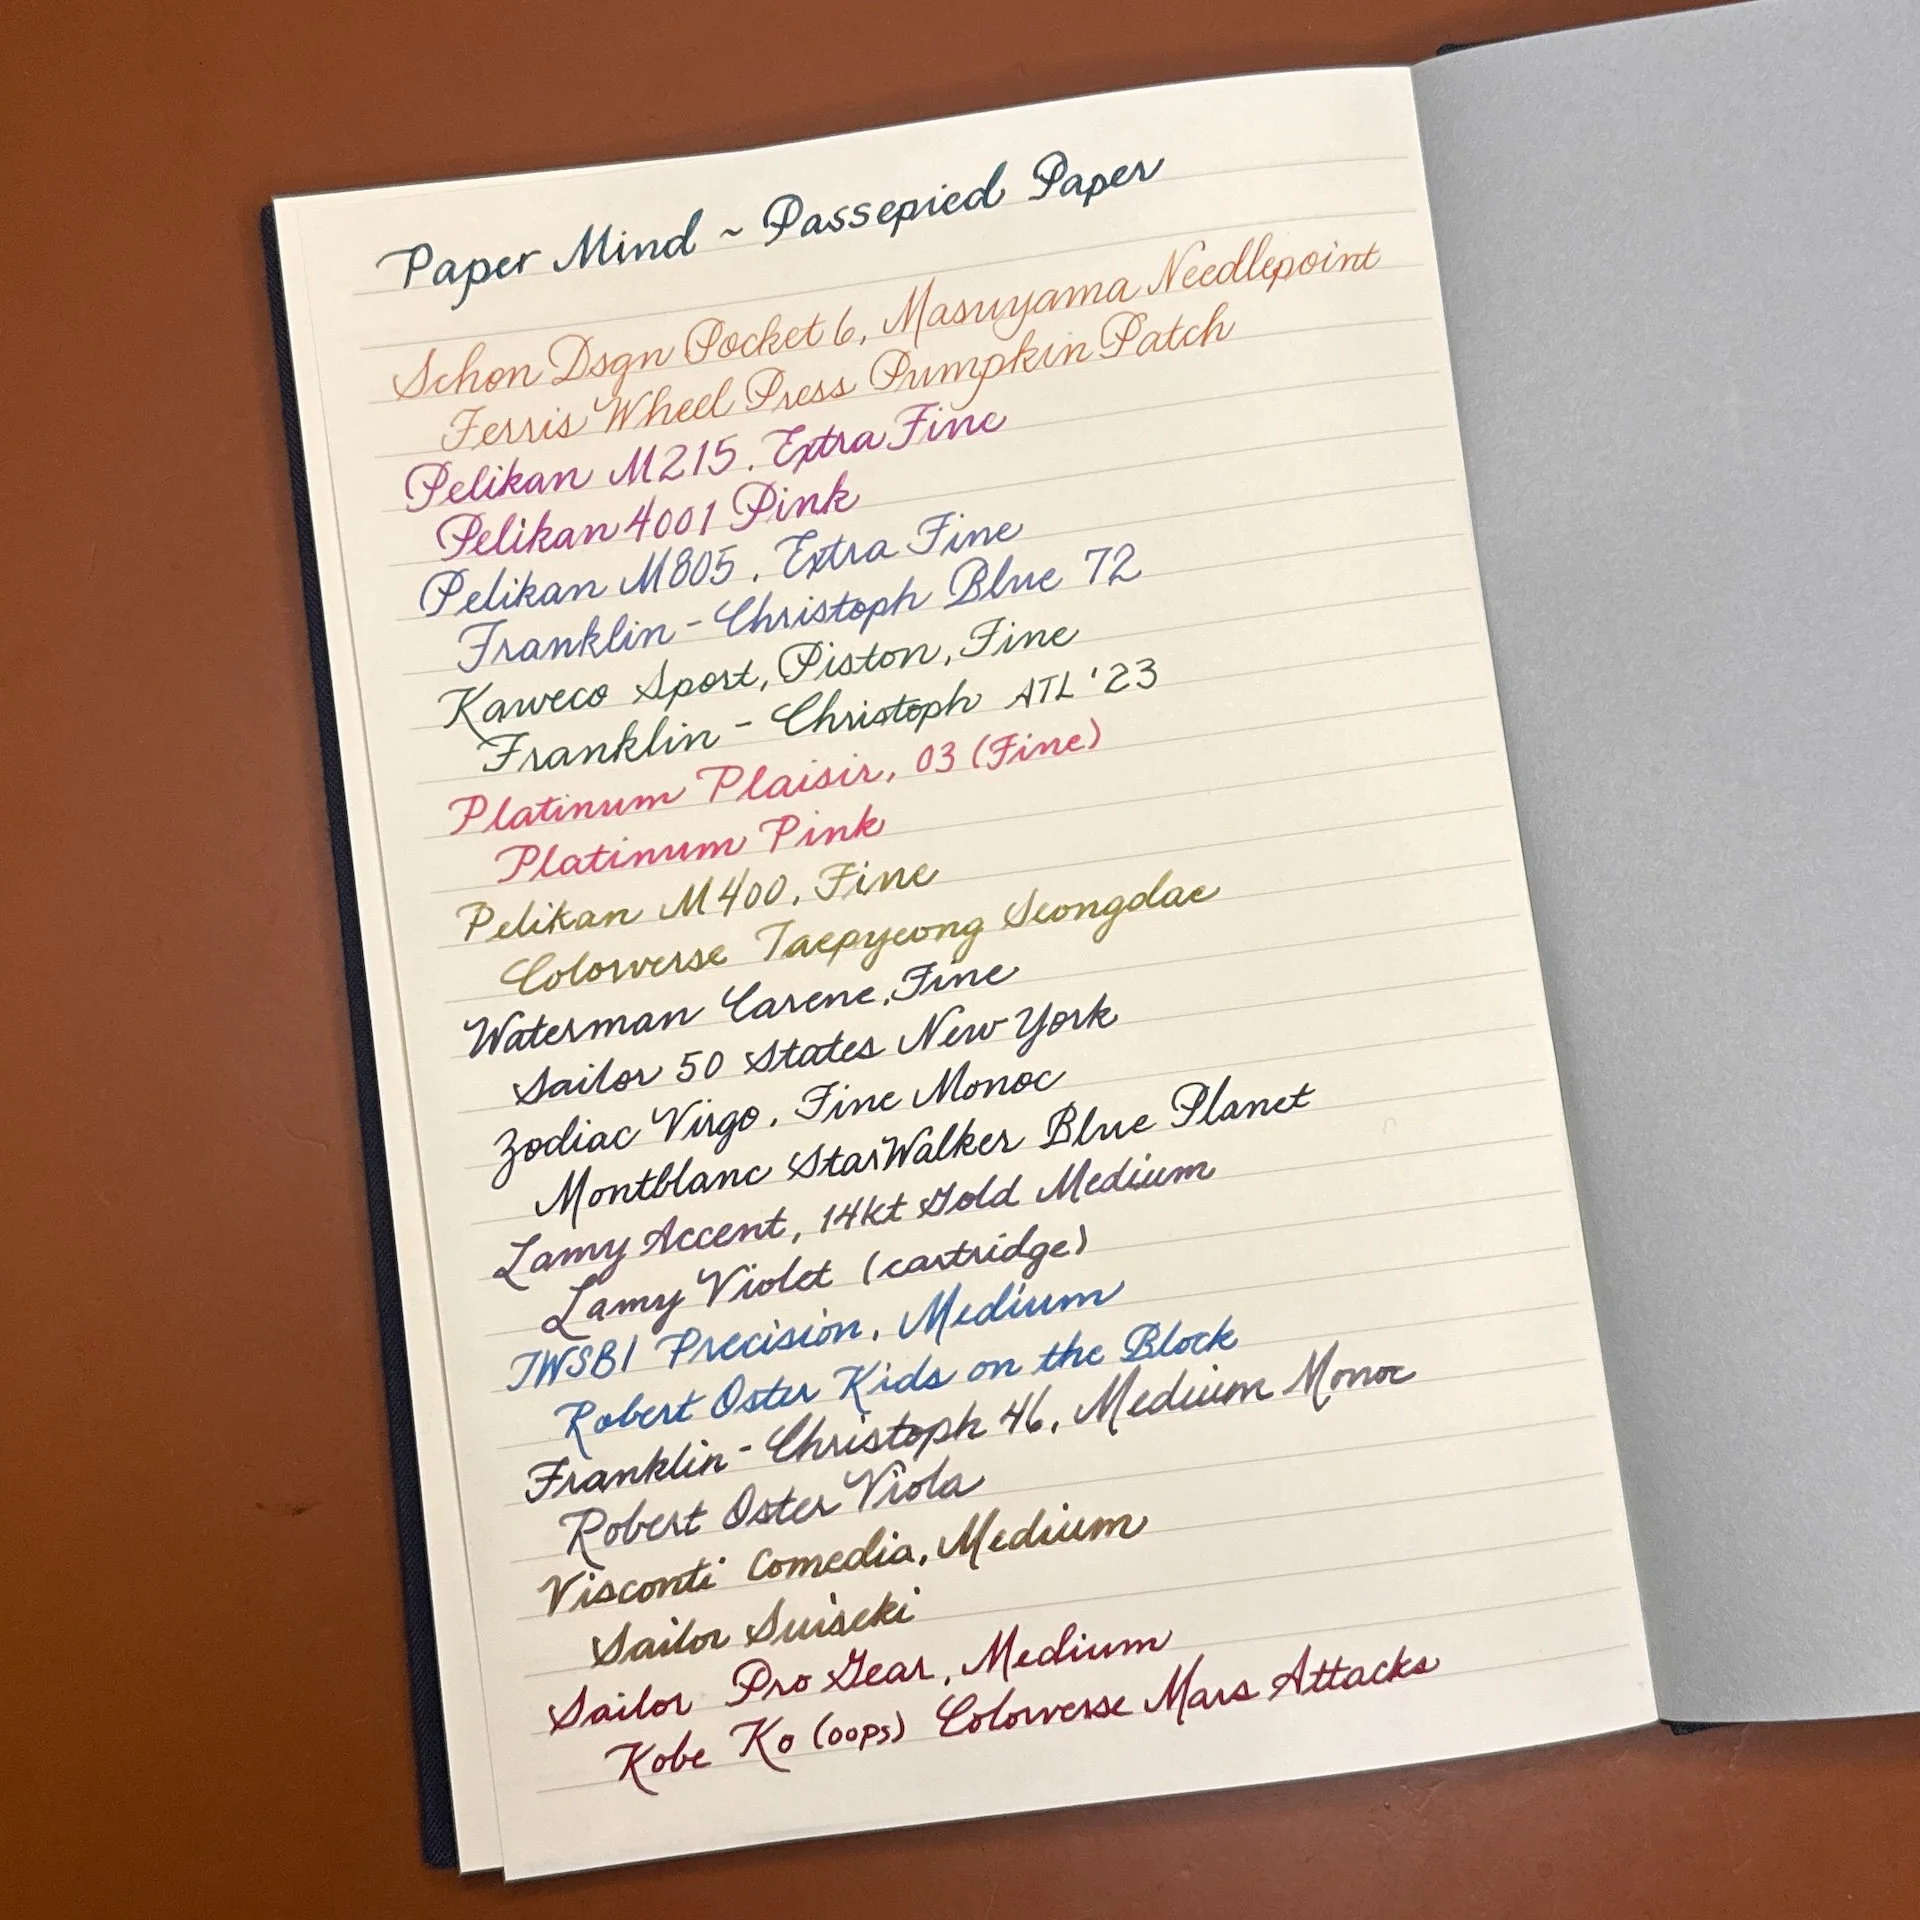 Paper Mind ~ Passepied Paper
Schon Dsgn Pocket 6, Masuyama Needlepoint
Ferris Wheel Press Pumpkin Patch
Pelikan M215, Extra Fine
Pelikan 4001 Pink
Pelikan M805, Extra Fine
Franklin-Christoph Blue 72
Kaweco Sport, Piston, Fine
Franklin-Christoph ATL '23
Platinum Plaisir, 03 (Fine)
Platinum Pink
Pelikan M400, Fine
Colorverse Taepyeong Seongdae
Waterman Carene, Fine
Sailor 50 States New York
Zodiac Virgo, Fine Monoc
Montblanc StarWalker Blue Planet
Lamy Accent, 14kt Gold Medium
Lamy Violet (cartridge)
TWSBI Precision, Medium
Robert Oster Kids on the Block
Franklin-Christoph 46, Medium Monoc
Robert Oster Viola
Visconti Comedia, Medium
Sailor Suiseki
Sailor Pro Gear, Medium
Kobe Ko (oops) Colorverse Mars Attacks